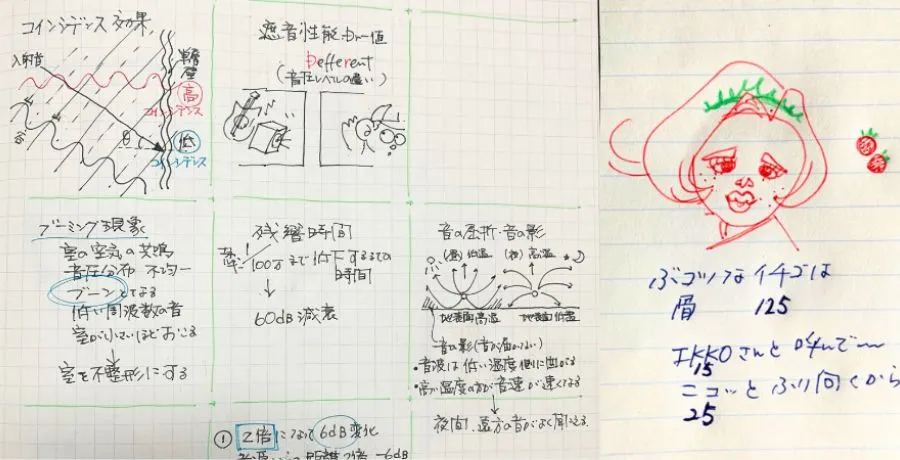 コインシデンス効果
入射音
単層壁
高
コインシデンス
低
コインシデンス
θ
遮音性能 Dr値
Defferent
(音圧レベルの違い)
ブーミング現象
室の空気の共鳴
音圧分布 不均一
ブーンとなる
低い周波数の音
室が小さいほどおこる
室を不整形にする
残響時間
1/100万まで低下するまでの
時間
60dB減衰
音の屈折・音の影
(昼)低温
(夜)高温
地表面高温
地表面低温
音の影(音が届かない)
・音波は低い温度側に曲がる
・高い温度の方が音速が速くなる
夜間、遠方の音がよく聞こえる
① 2倍になって6dB変化
距離2倍 -6dB
ぶコツなイチゴは
屑 125
IKKOさんと叫んで〜
15
ニコッとふり向くから
25